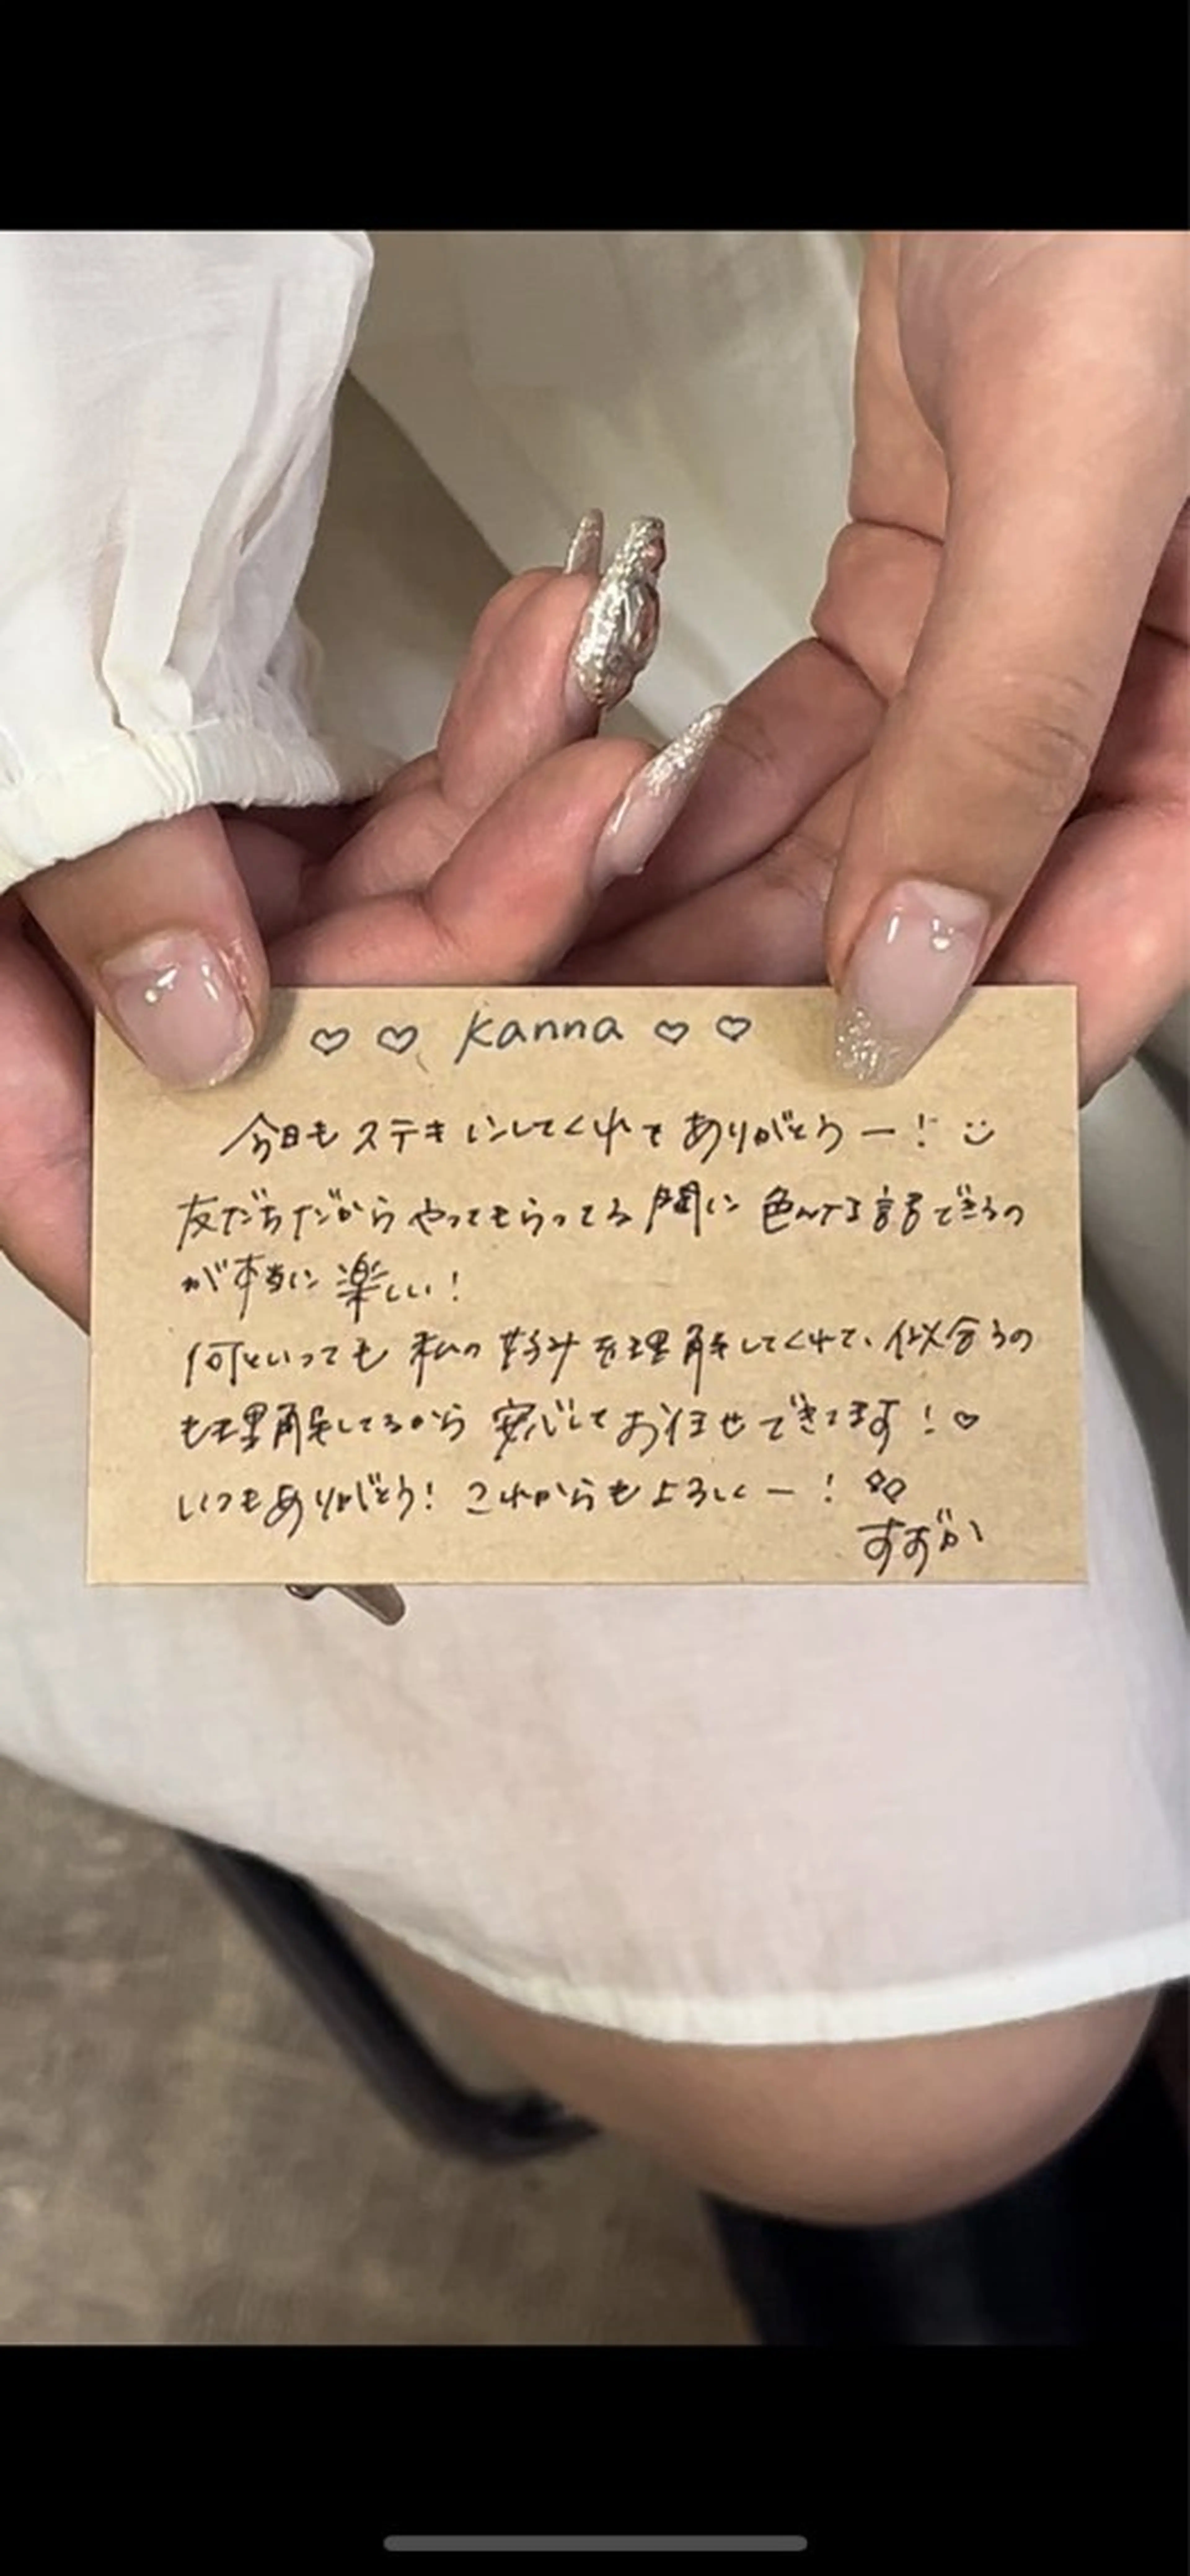 ♡ ♡ Kanna ♡ ♡
今日もステキにしてくれてありがとうー! ☺
友だちだからやってもらってる間に色んな話できるの
が本当に楽しい!
何といっても私の好みを理解してくれて、似合うの
も理解してるから安心しておまかせできてます!♡
いつもありがとう! これからもよろしくー! ♡♡
すずか